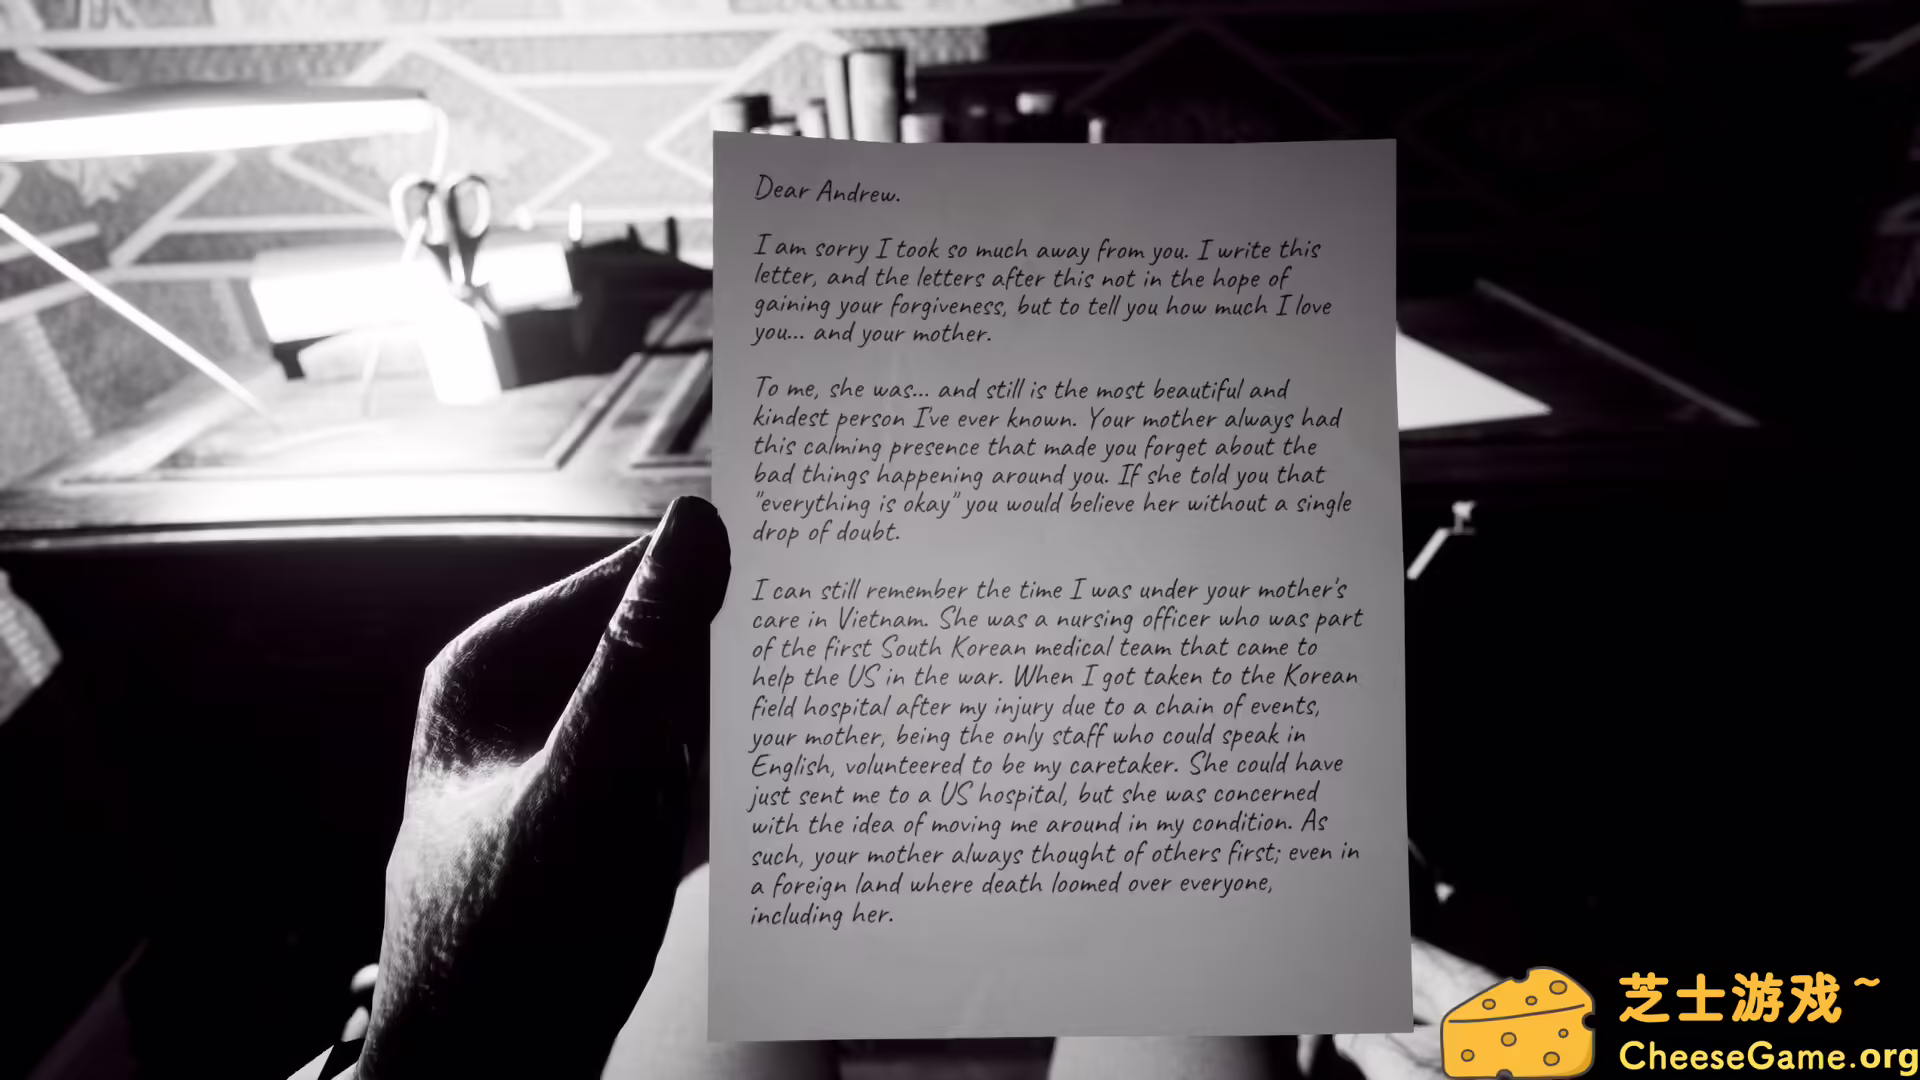 Dear Andrew.
I am sorry I took so much away from you. I write this
letter, and the letters after this not in the hope of
gaining your forgiveness, but to tell you how much I love
you... and your mother.
To me, she was... and still is the most beautiful and
kindest person I've ever known. Your mother always had
this calming presence that made you forget about the
bad things happening around you. If she told you that
"everything is okay" you would believe her without a single
drop of doubt.
I can still remember the time I was under your mother's
care in Vietnam. She was a nursing officer who was part
of the first South Korean medical team that came to
help the US in the war. When I got taken to the Korean
field hospital after my injury due to a chain of events,
your mother, being the only staff who could speak in
English, volunteered to be my caretaker. She could have
just sent me to a US hospital, but she was concerned
with the idea of moving me around in my condition. As
such, your mother always thought of others first; even in
a foreign land where death loomed over everyone,
including her.
芝士游戏~
CheeseGame.org